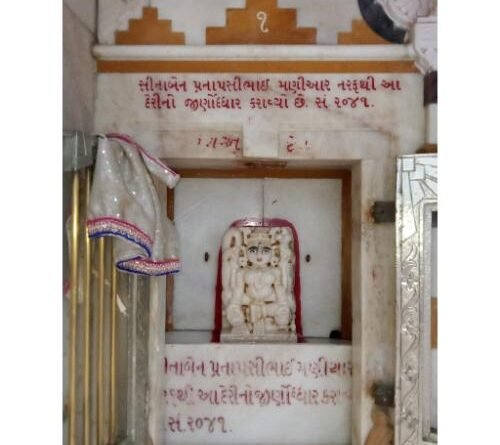 ૧
સીનાબેન પ્રતાપસીભાઈ મણીઆર તરફથી આ
દેરીનો જીર્ણોધ્ધાર કરાવ્યો છે. સં ૨૦૪૧.
પ્રતાપસીભાઈ મણીયાર
આ દેરીનો જીર્ણોધ્ધાર
સં. ૨૦૪૧.